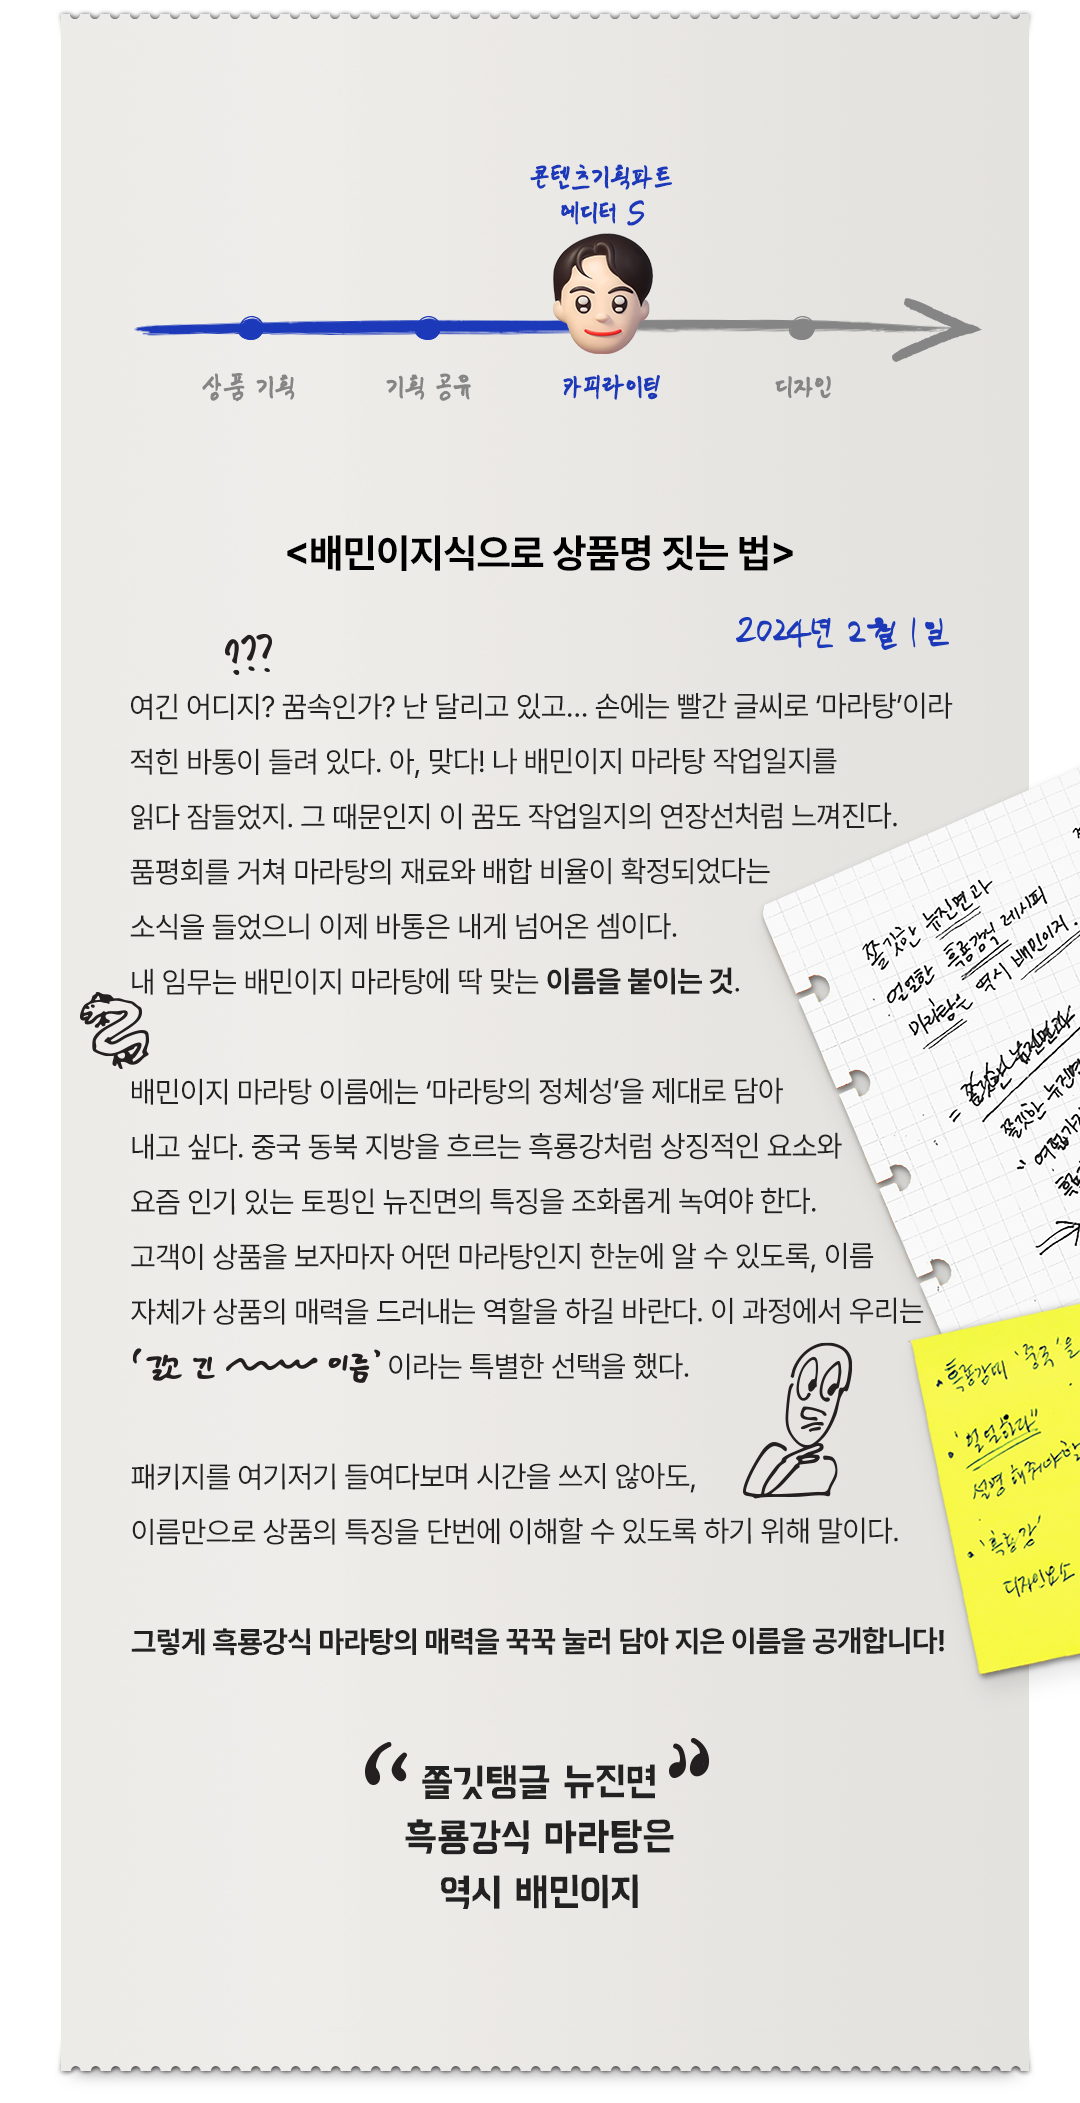 콘텐츠기획파트
에디터 S
상품 기획
기획 공유
카피라이팅
디자인
<배민이지식으로 상품명 짓는 법>
2024년 2월 1일
???
여긴 어디지? 꿈속인가? 난 달리고 있고... 손에는 빨간 글씨로 ‘마라탕’이라
적힌 바통이 들려 있다. 아, 맞다! 나 배민이지 마라탕 작업일지를
읽다 잠들었지. 그 때문인지 이 꿈도 작업일지의 연장선처럼 느껴진다.
품평회를 거쳐 마라탕의 재료와 배합 비율이 확정되었다는
소식을 들었으니 이제 바통은 내게 넘어온 셈이다.
내 임무는 배민이지 마라탕에 딱 맞는 이름을 붙이는 것.
배민이지 마라탕 이름에는 ‘마라탕의 정체성’을 제대로 담아
내고 싶다. 중국 동북 지방을 흐르는 흑룡강처럼 상징적인 요소와
요즘 인기 있는 토핑인 뉴진면의 특징을 조화롭게 녹여야 한다.
고객이 상품을 보자마자 어떤 마라탕인지 한눈에 알 수 있도록, 이름
자체가 상품의 매력을 드러내는 역할을 하길 바란다. 이 과정에서 우리는
‘길고 긴 이름’ 이라는 특별한 선택을 했다.
패키지를 여기저기 들여다보며 시간을 쓰지 않아도,
이름만으로 상품의 특징을 단번에 이해할 수 있도록 하기 위해 말이다.
그렇게 흑룡강식 마라탕의 매력을 꾹꾹 눌러 담아 지은 이름을 공개합니다!
“쫄깃탱글 뉴진면”
흑룡강식 마라탕은
역시 배민이지
쫄깃한 뉴진면과
얼얼한 흑룡강식 레시피
마라탕은 역시 배민이지.
쫄깃한 뉴진면
"얼얼하다"
'흑룡강'